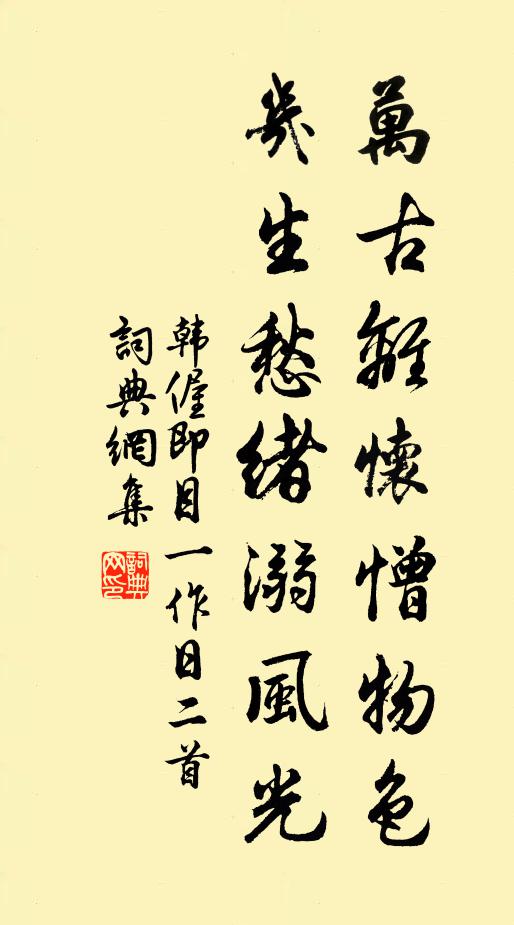 萬古離懷憎物色
幾生愁緒溺風光
韩偓即目一作日二首
詞典網集
詞典网印